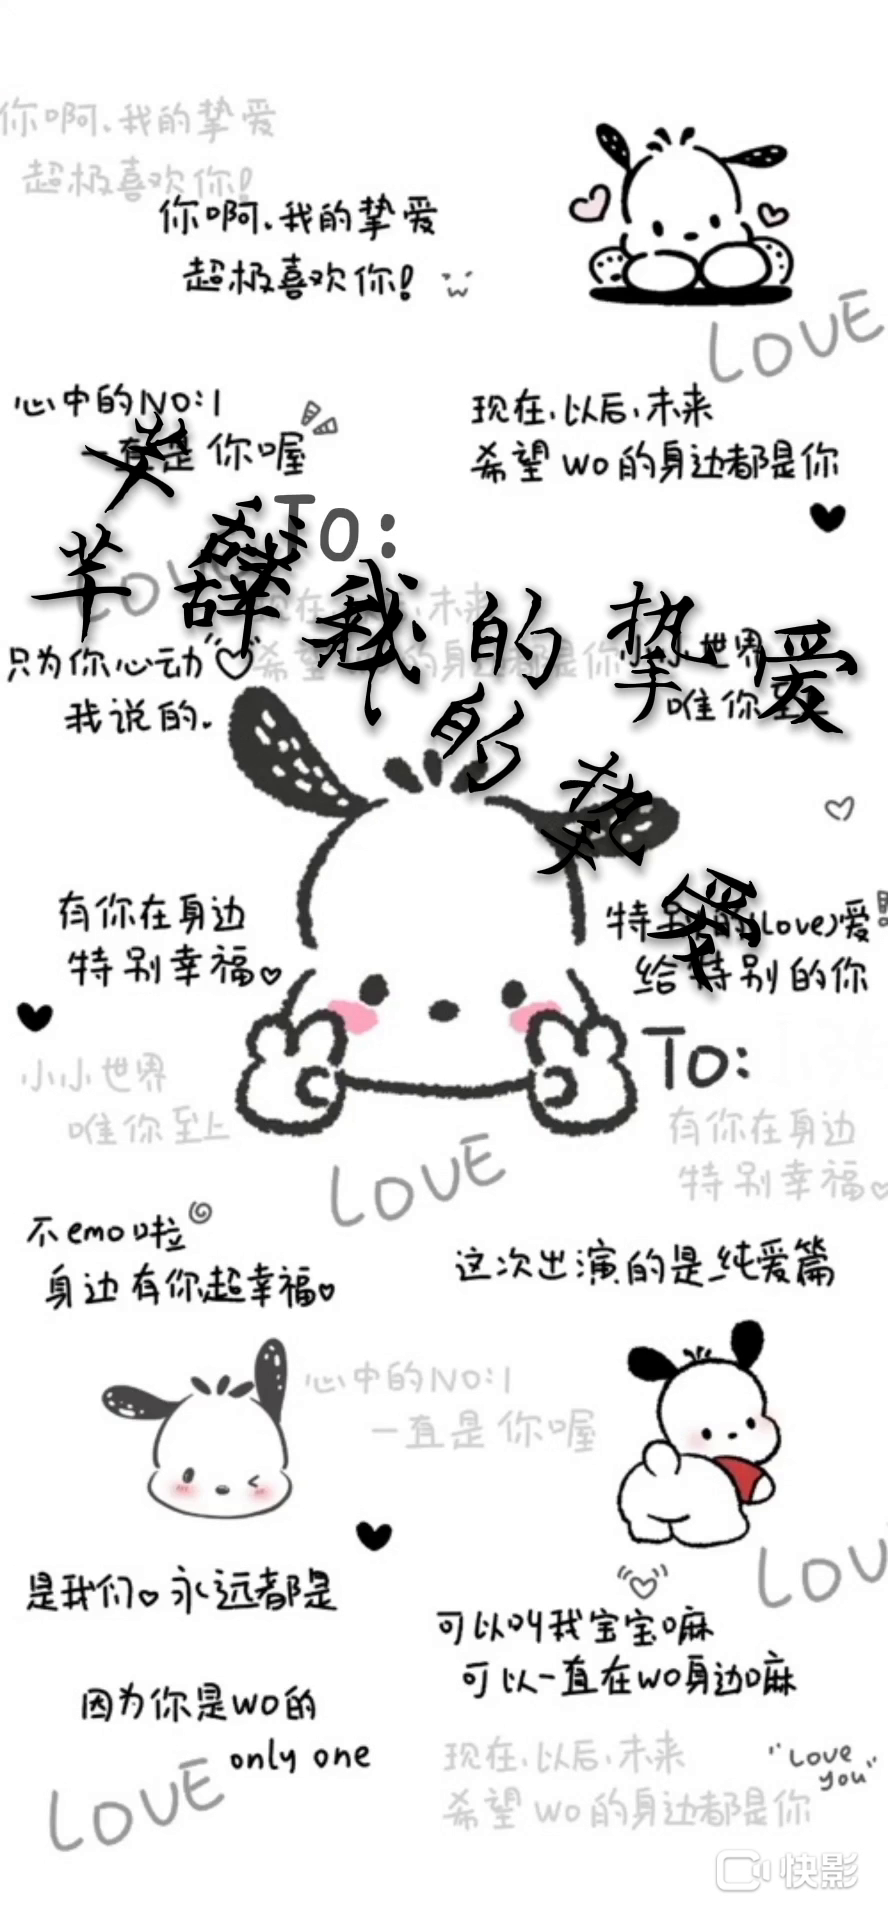 你啊、我的挚爱
超极喜欢你!
你啊、我的挚爱
超极喜欢你!
LOVE
心中的NO:1
一直是你喔
现在,以后,未来
希望wo的身边都是你
To:
LOVE
现在,以后,未来
希望wo的身边都是你
芊
芊
我的挚爱
的挚爱
只为你心动
我说的.
小小世界
唯你至上
有你在身边
特别幸福
特别的(Love)爱
给特别的你
To:
小小世界
唯你至上
有你在身边
特别幸福
LOVE
不emo啦
身边有你超幸福
这次出演的是纯爱篇
心中的NO:1
一直是你喔
是我们 永远都是
LOVE
可以叫我宝宝嘛
可以一直在wo身边嘛
因为你是wo的
only one
LOVE
现在,以后,未来
希望wo的身边都是你
"Love
you"
快影